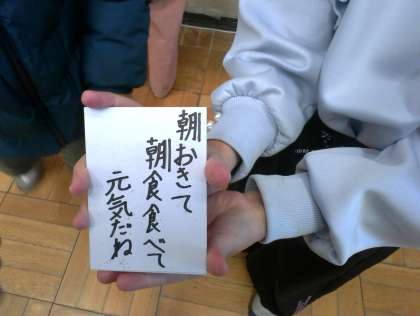 朝おきて
朝食食べて
元気だね